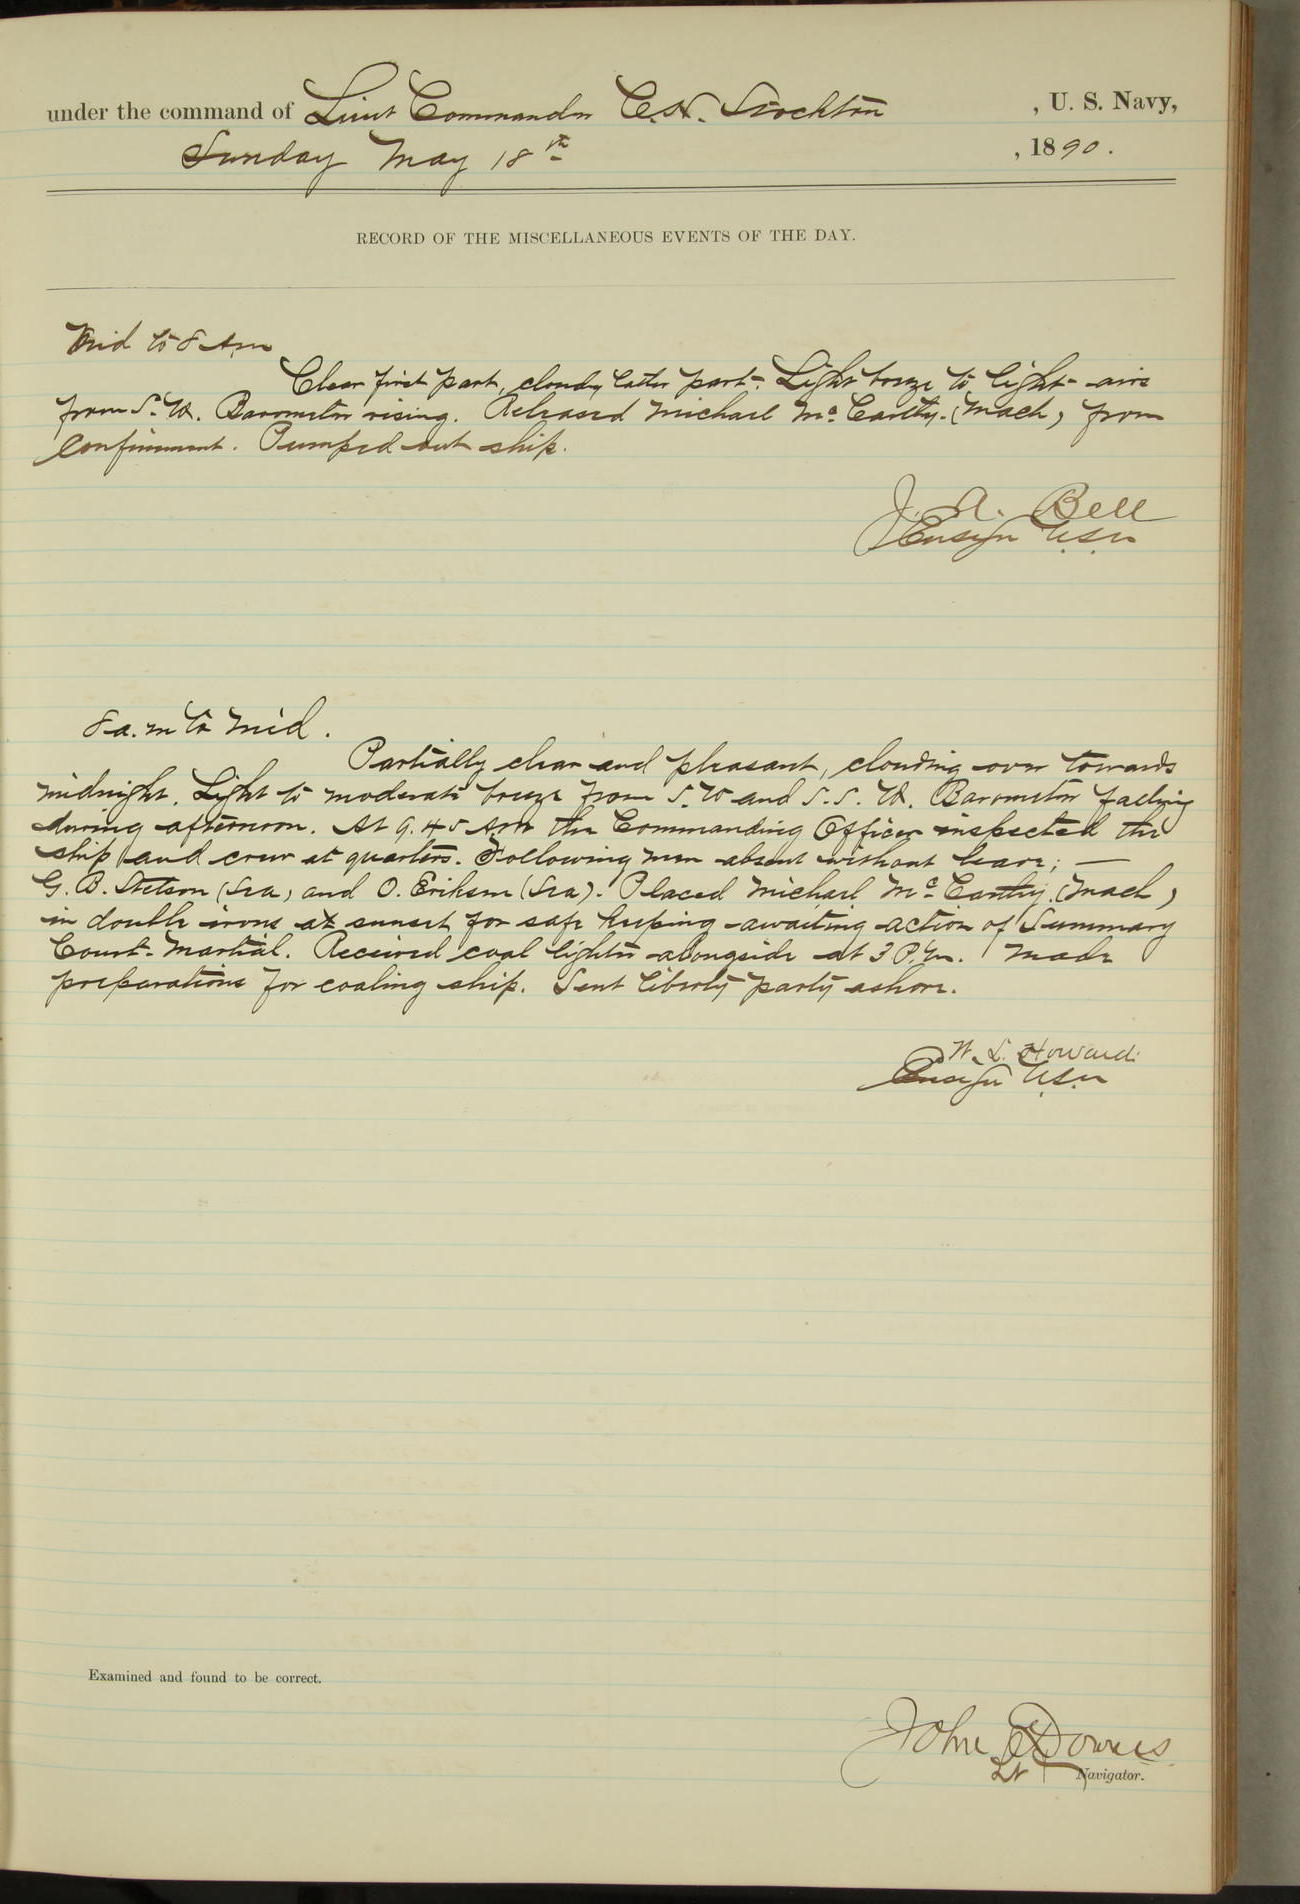 under the command of Lieut Commander C. H. Stockton, U. S. Navy,
Sunday May 18th, 1890.
RECORD OF THE MISCELLANEOUS EVENTS OF THE DAY.
Mid to 8 Am
Clear first part, cloudy latter part. Light breeze to light airs
from S. W. Barometer rising. Released Michael McCarthy. (Mach) from
confinement. Pumped out ship.
J. A. Bell
Ensign U.S.N
8 a.m to Mid.
Partially clear and pleasant, clouding over towards
midnight. Light to moderate breeze from S. W and S. S. W. Barometer falling
during afternoon. At 9.45 Am the Commanding Officer inspected the
ship and crew at quarters. Following men absent without leave; —
G. B. Stetson (Sea) and O. Eriksen (Sea). Placed Michael McCarthy. (Mach)
in double irons at sunset for safe keeping awaiting action of Summary
Court-Martial. Received coal lighter alongside at 3 P.M. Made
preparations for coaling ship. Sent liberty party ashore.
W. L. Howard.
Ensign U.S.N
Examined and found to be correct.
John Downes
Lt Navigator.